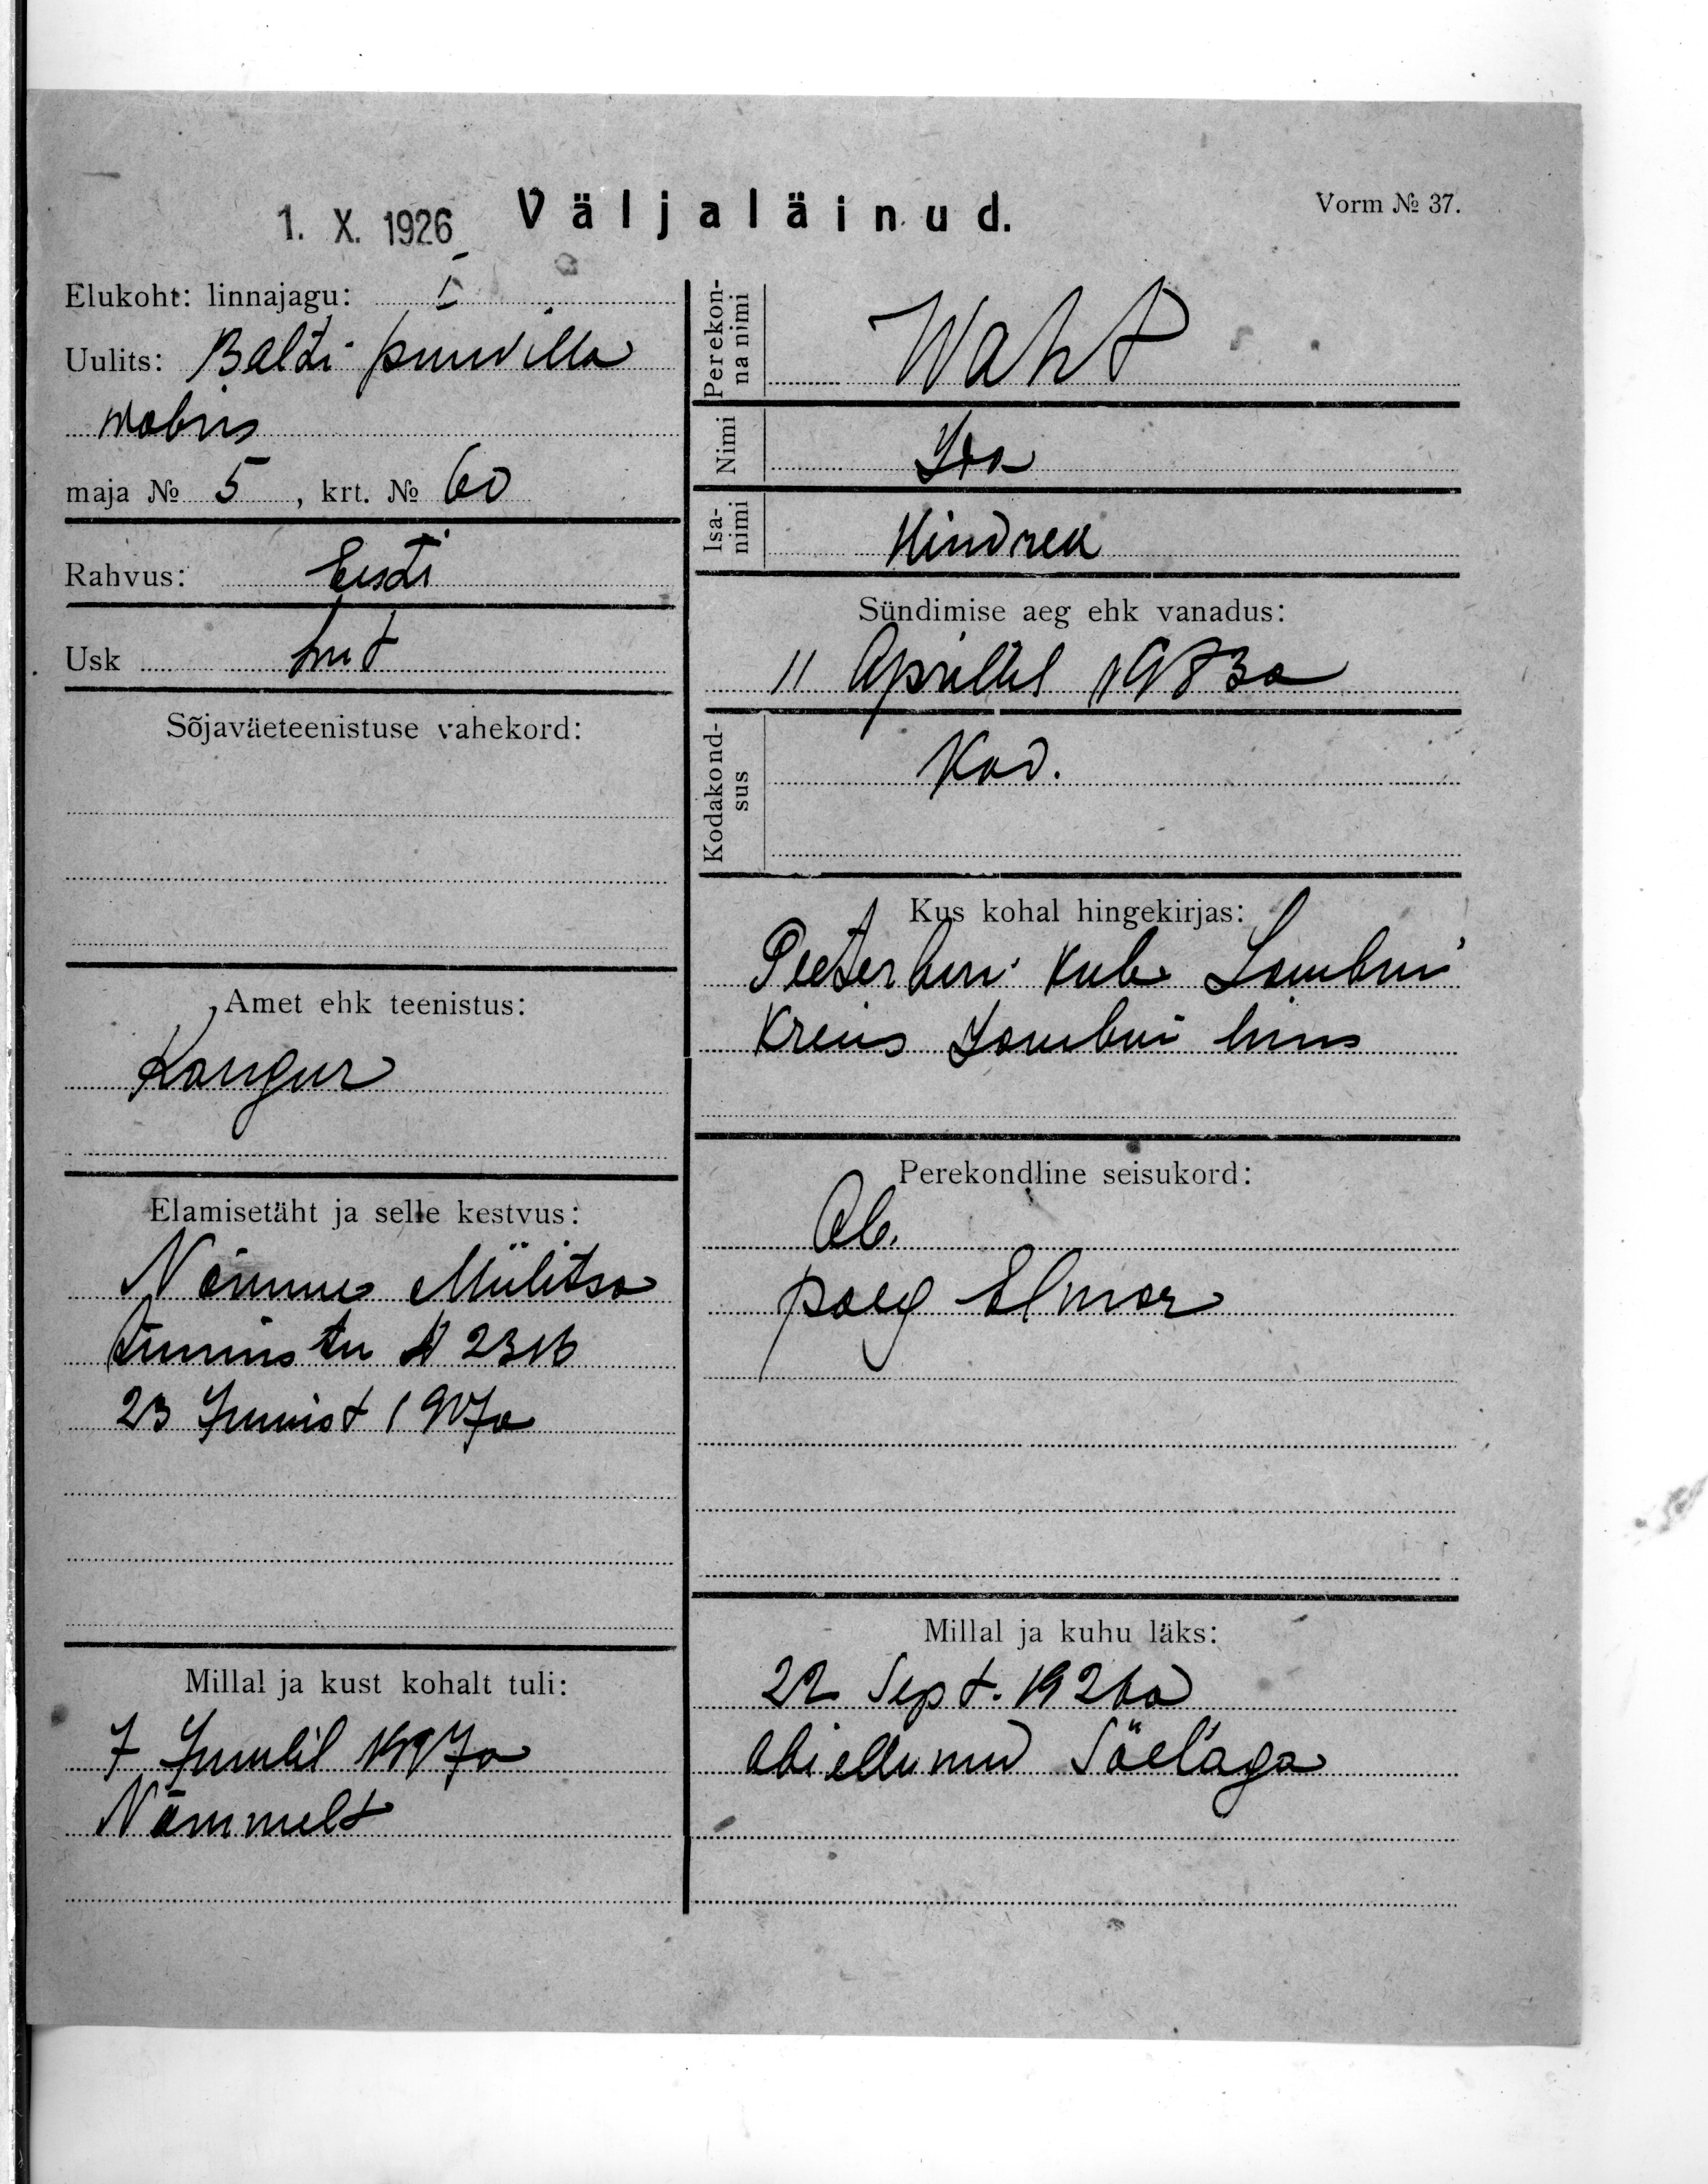 1. X. 1926 Väljaläinud.
Vorm № 37.
Elukoht: linnajagu: I
Uulits: Balti puuvilla
wabris
maja № 5, krt. № 60
Rahvus: Eesti
Usk Lut
Sõjaväeteenistuse vahekord:
Amet ehk teenistus:
Kangur
Elamisetäht ja selle kestvus:
Nõmme Miilitsa
23 Juunist
Millal ja kust kohalt tuli:
7 Juulil
Nõmmelt
Perekonna nimi
Waht
Nimi
Ida
Isanimi
Hindrek
Sündimise aeg ehk vanadus:
11 Aprillil
Kodakondsus
Kod.
Kus kohal hingekirjas:
Peeterburi kub Jamburi
Kreis Jamburi linn
Perekondline seisukord:
Ab.
poeg Elmar
Millal ja kuhu läks:
22 Sept. 1926a
abiellunud Sõel'aga